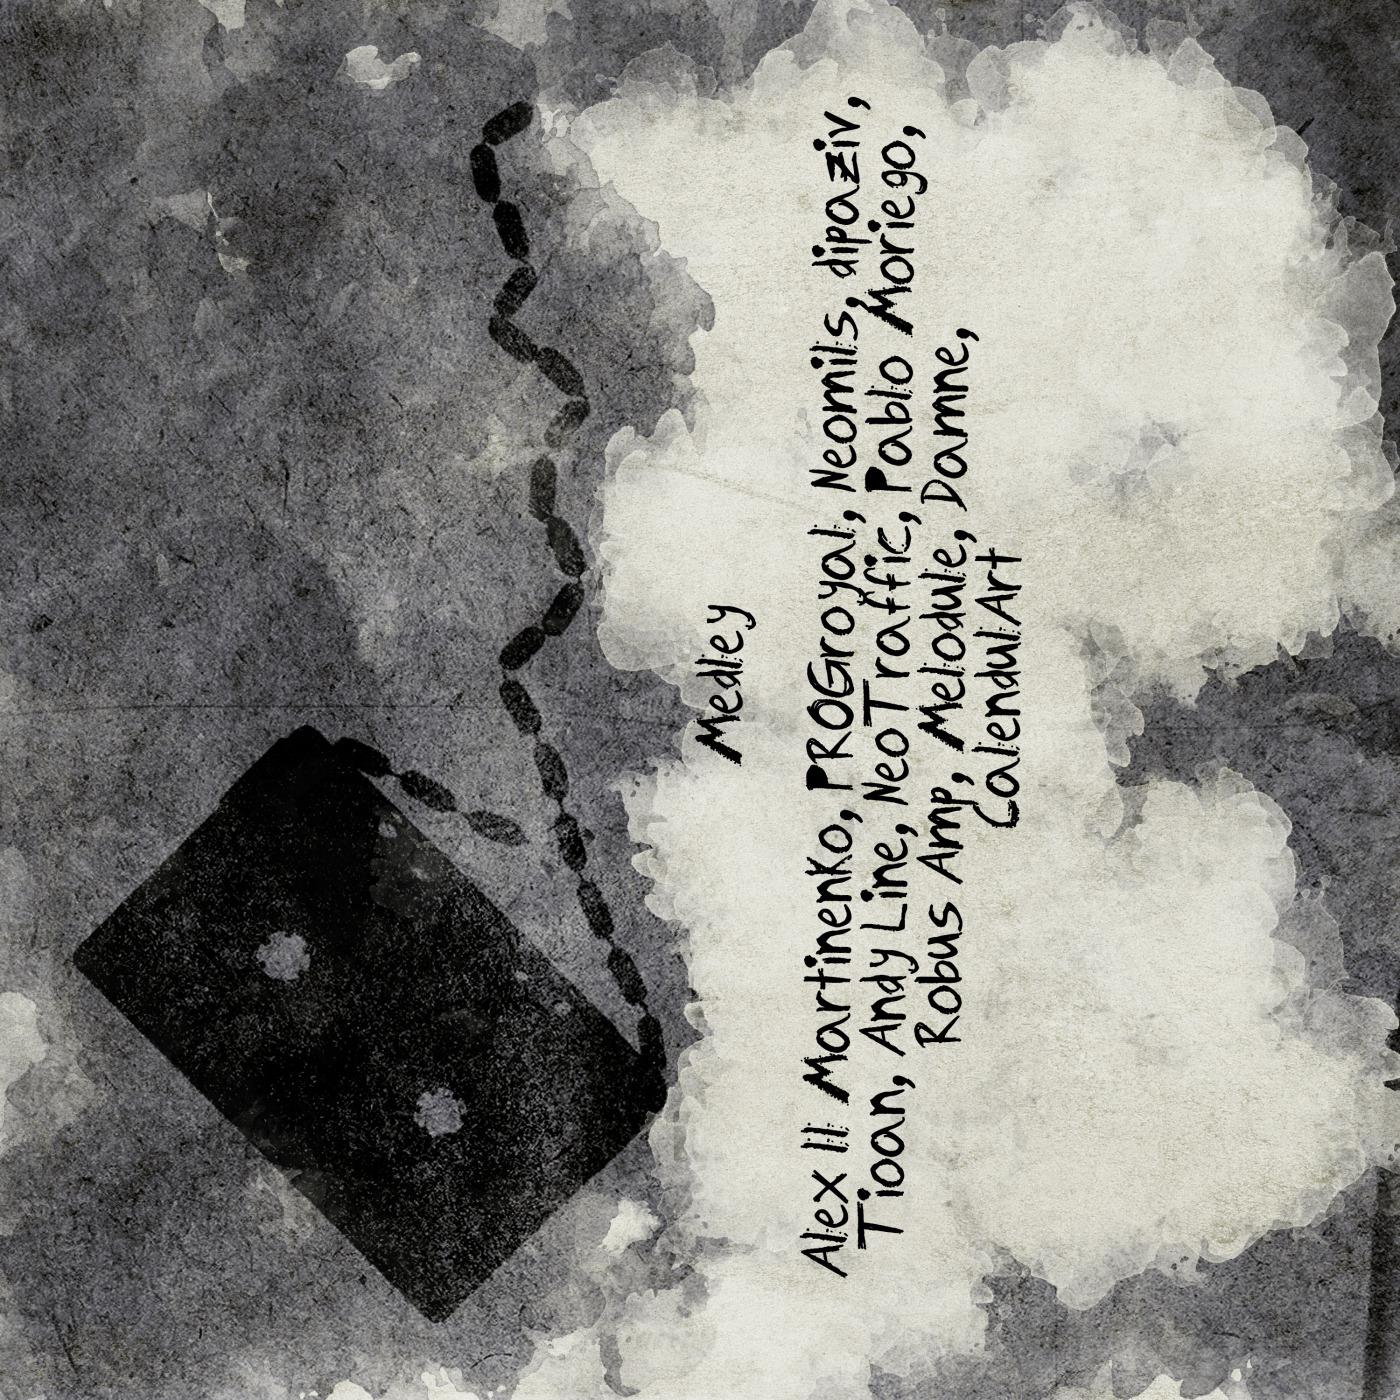 Medley
Alex II Martinenko, PROGroyal, Neomils, dipaziv,
Tioan, Andy Line, NeoTraffic, Pablo Moriego,
Robus Amp, Melodule, Damne,
CalendulArt